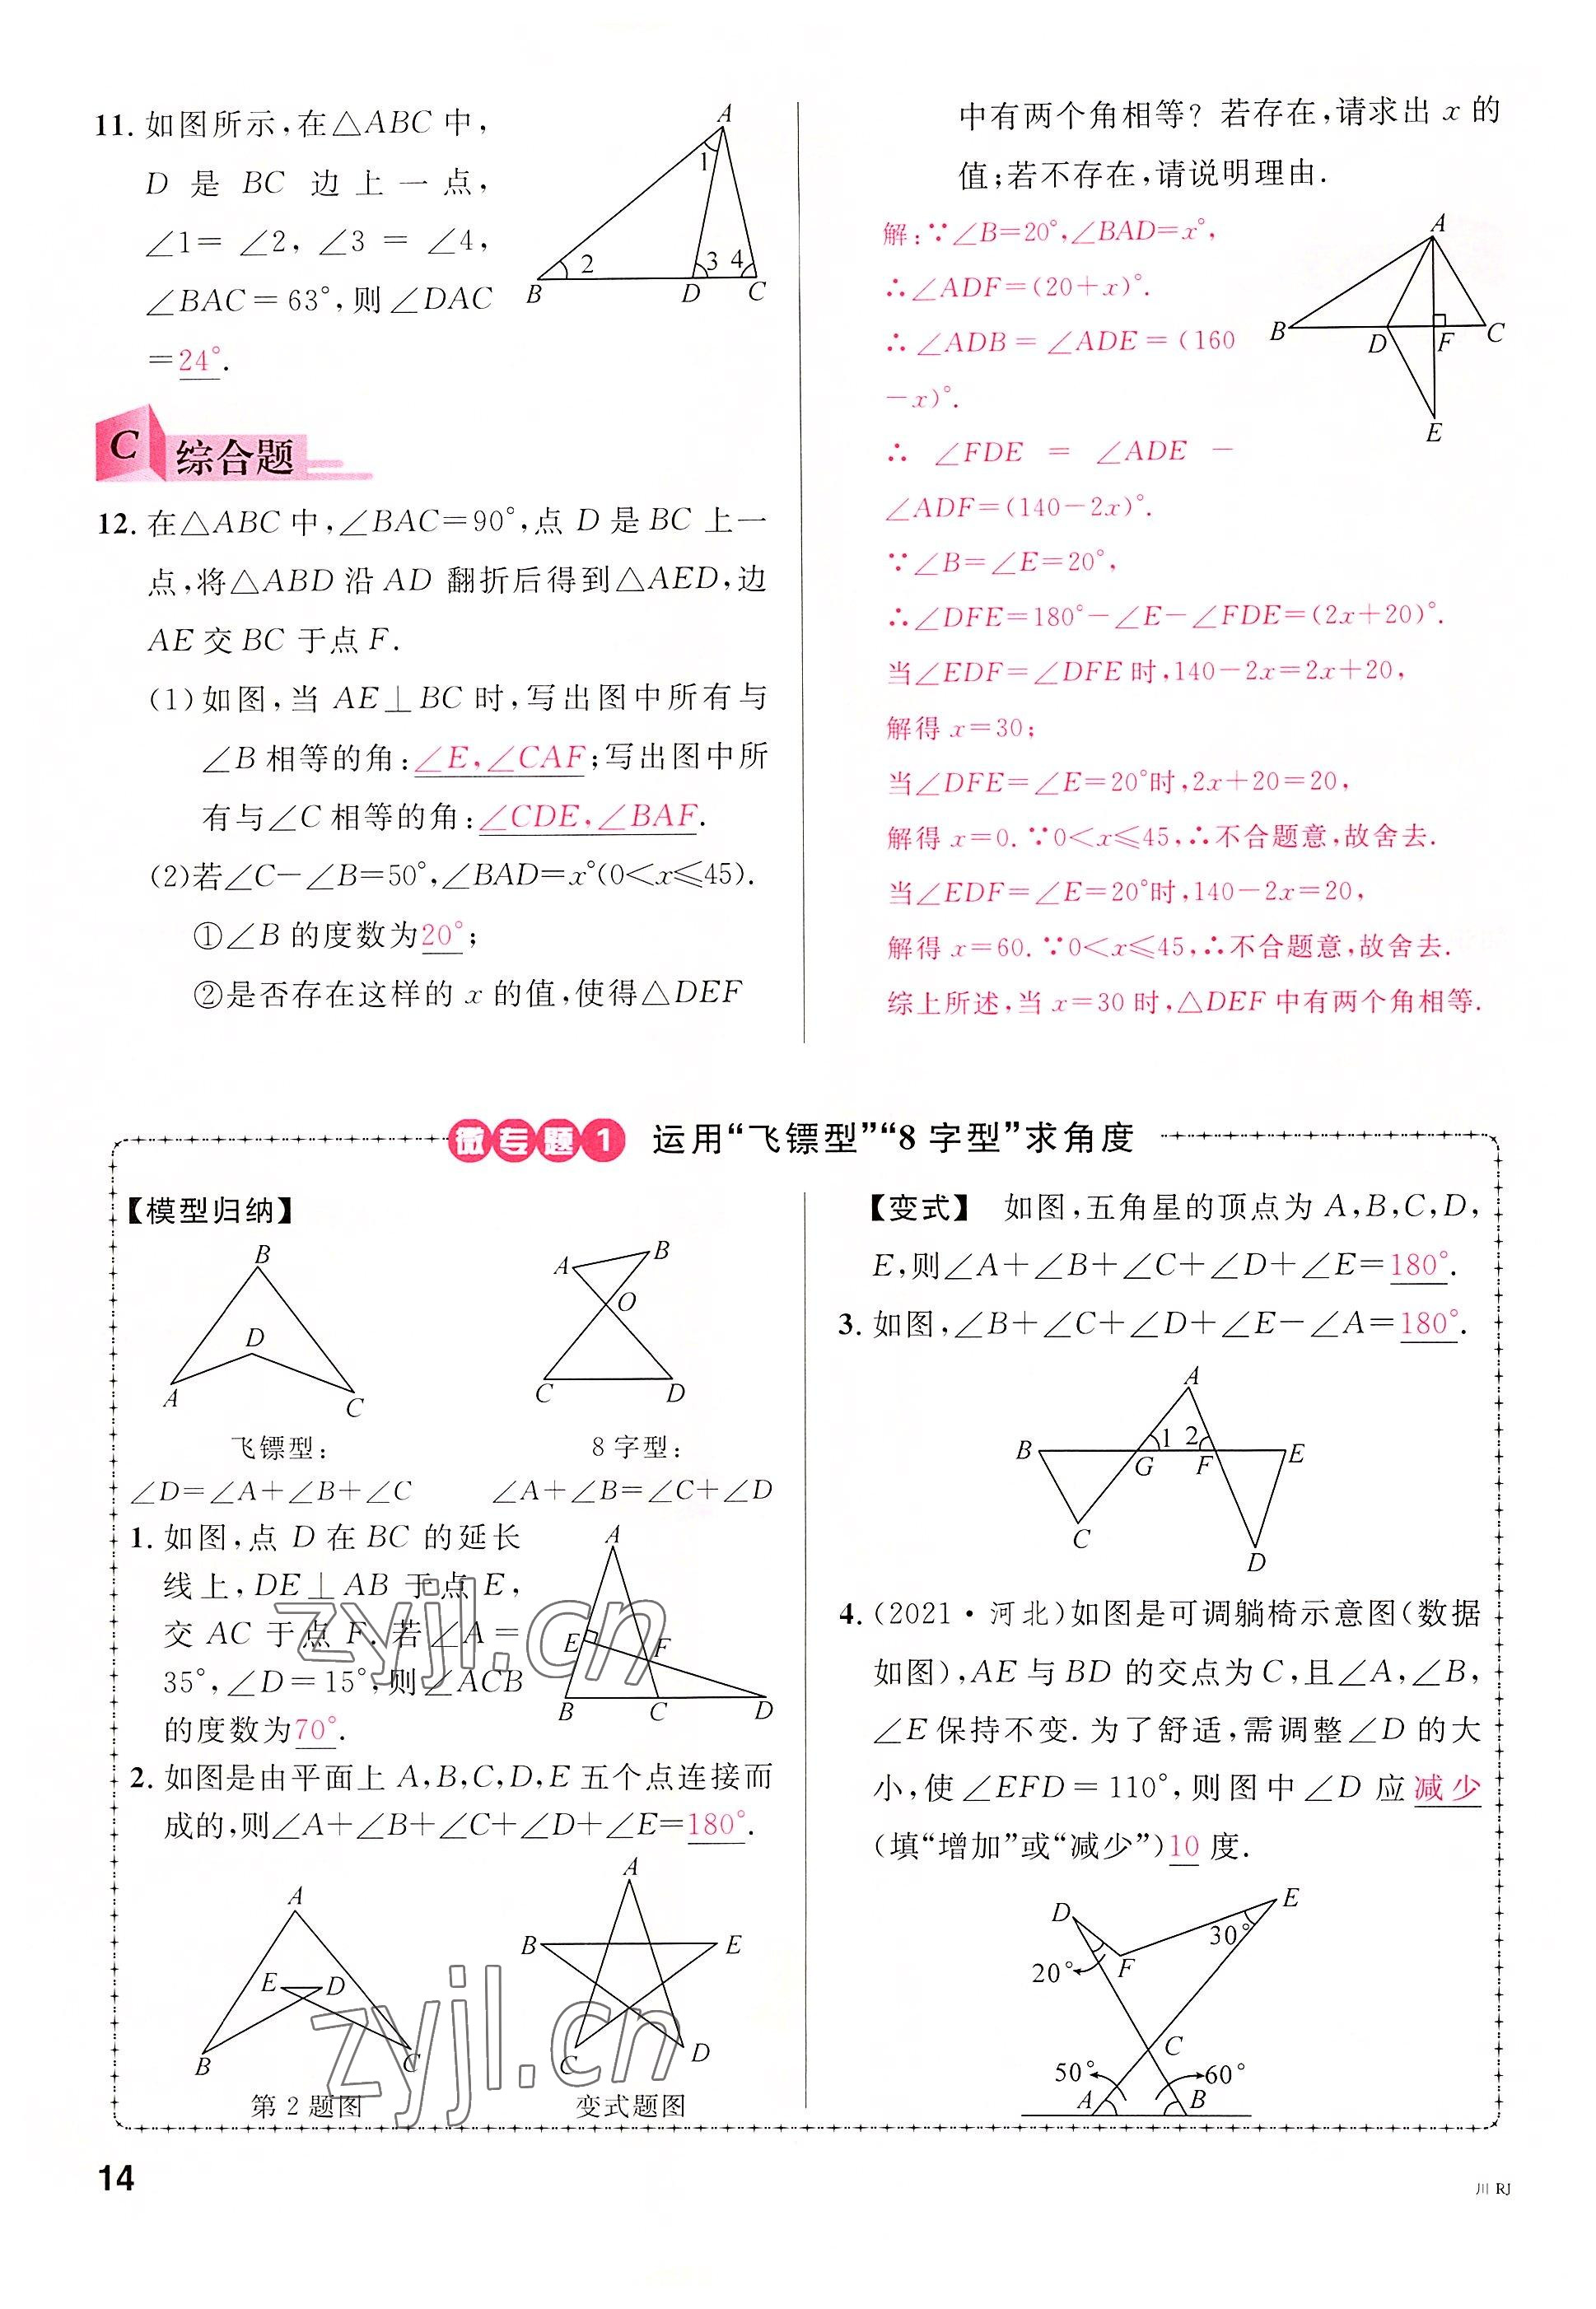 11. 如图所示,在△ABC中,
D 是 BC 边上一点,
∠1= ∠2, ∠3 = ∠4,
∠BAC=63°,则∠DAC
=24°.
A
1
2
3
4
B
D
C
C 综合题
12. 在△ABC中,∠BAC=90°,点 D 是 BC 上一
点,将△ABD沿 AD 翻折后得到△AED,边
AE 交 BC 于点 F.
(1)如图,当 AE⊥BC 时,写出图中所有与
∠B相等的角:∠E,∠CAF;写出图中所
有与∠C相等的角:∠CDE,∠BAF.
(2)若∠C-∠B=50°,∠BAD=x°(0<x≤45).
①∠B 的度数为20°;
②是否存在这样的 x 的值,使得△DEF
中有两个角相等? 若存在,请求出 x 的
值;若不存在,请说明理由.
解:∵∠B=20°,∠BAD=x°,
∴∠ADF=(20+x)°.
∴∠ADB=∠ADE=(160
-x)°.
∴ ∠FDE = ∠ADE -
∠ADF=(140-2x)°.
∵∠B=∠E=20°,
∴∠DFE=180°-∠E-∠FDE=(2x+20)°.
当∠EDF=∠DFE时,140-2x=2x+20,
解得 x=30;
当∠DFE=∠E=20°时,2x+20=20,
解得 x=0.∵0<x≤45,∴不合题意,故舍去.
当∠EDF=∠E=20°时,140-2x=20,
解得 x=60.∵0<x≤45,∴不合题意,故舍去.
综上所述,当 x=30时,△DEF中有两个角相等.
A
B
D
F
C
E
微专题1 运用“飞镖型”“8字型”求角度
【模型归纳】
B
D
A
C
A
B
O
C
D
飞镖型:
8字型:
∠D=∠A+∠B+∠C
∠A+∠B=∠C+∠D
1. 如图,点 D 在 BC 的延长
线上,DE⊥AB 于点E,
交 AC 于点 F. 若∠A=
35°,∠D=15°,则∠ACB
的度数为70°.
A
E
F
B
C
D
2. 如图是由平面上 A,B,C,D,E 五个点连接而
成的,则∠A+∠B+∠C+∠D+∠E=180°.
A
E
D
B
C
第2题图
A
B
E
C
D
变式题图
【变式】 如图,五角星的顶点为 A,B,C,D,
E,则∠A+∠B+∠C+∠D+∠E=180°.
3. 如图,∠B+∠C+∠D+∠E-∠A=180°.
A
B
1
2
E
G
F
C
D
4. (2021·河北)如图是可调躺椅示意图(数据
如图),AE与BD的交点为C,且∠A,∠B,
∠E保持不变.为了舒适,需调整∠D的大
小,使∠EFD=110°,则图中∠D应减少
(填“增加”或“减少”)10度.
D
E
30°
F
20°
C
50°
60°
A
B
zyjl.cn
zyjl.cn
14
川 RJ